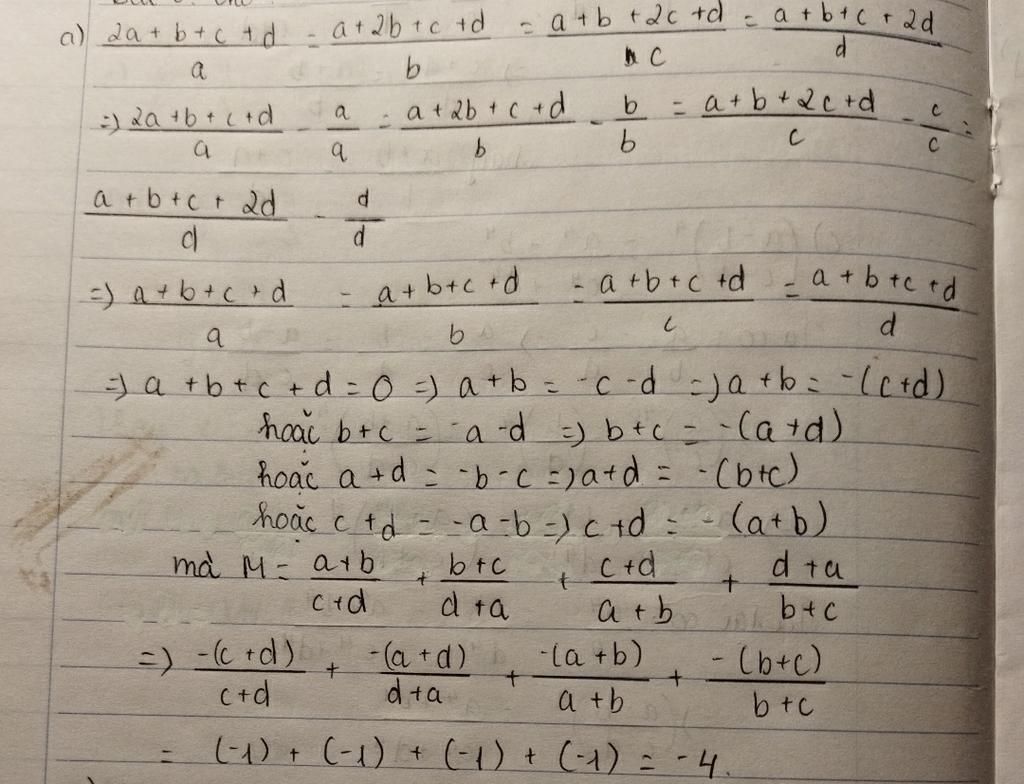 a) (2a+b+c+d)/a = (a+2b+c+d)/b = (a+b+2c+d)/c = (a+b+c+2d)/d
=> (2a+b+c+d)/a - a/a = (a+2b+c+d)/b - b/b = (a+b+2c+d)/c - c/c =
(a+b+c+2d)/d - d/d
=> (a+b+c+d)/a = (a+b+c+d)/b = (a+b+c+d)/c = (a+b+c+d)/d
=> a+b+c+d=0 => a+b = -c-d => a+b = -(c+d)
hoặc b+c = -a-d => b+c = -(a+d)
hoặc a+d = -b-c => a+d = -(b+c)
hoặc c+d = -a-b => c+d = -(a+b)
mà M = (a+b)/(c+d) + (b+c)/(d+a) + (c+d)/(a+b) + (d+a)/(b+c)
=> -(c+d)/(c+d) + -(a+d)/(d+a) + -(a+b)/(a+b) + -(b+c)/(b+c)
= (-1) + (-1) + (-1) + (-1) = -4.